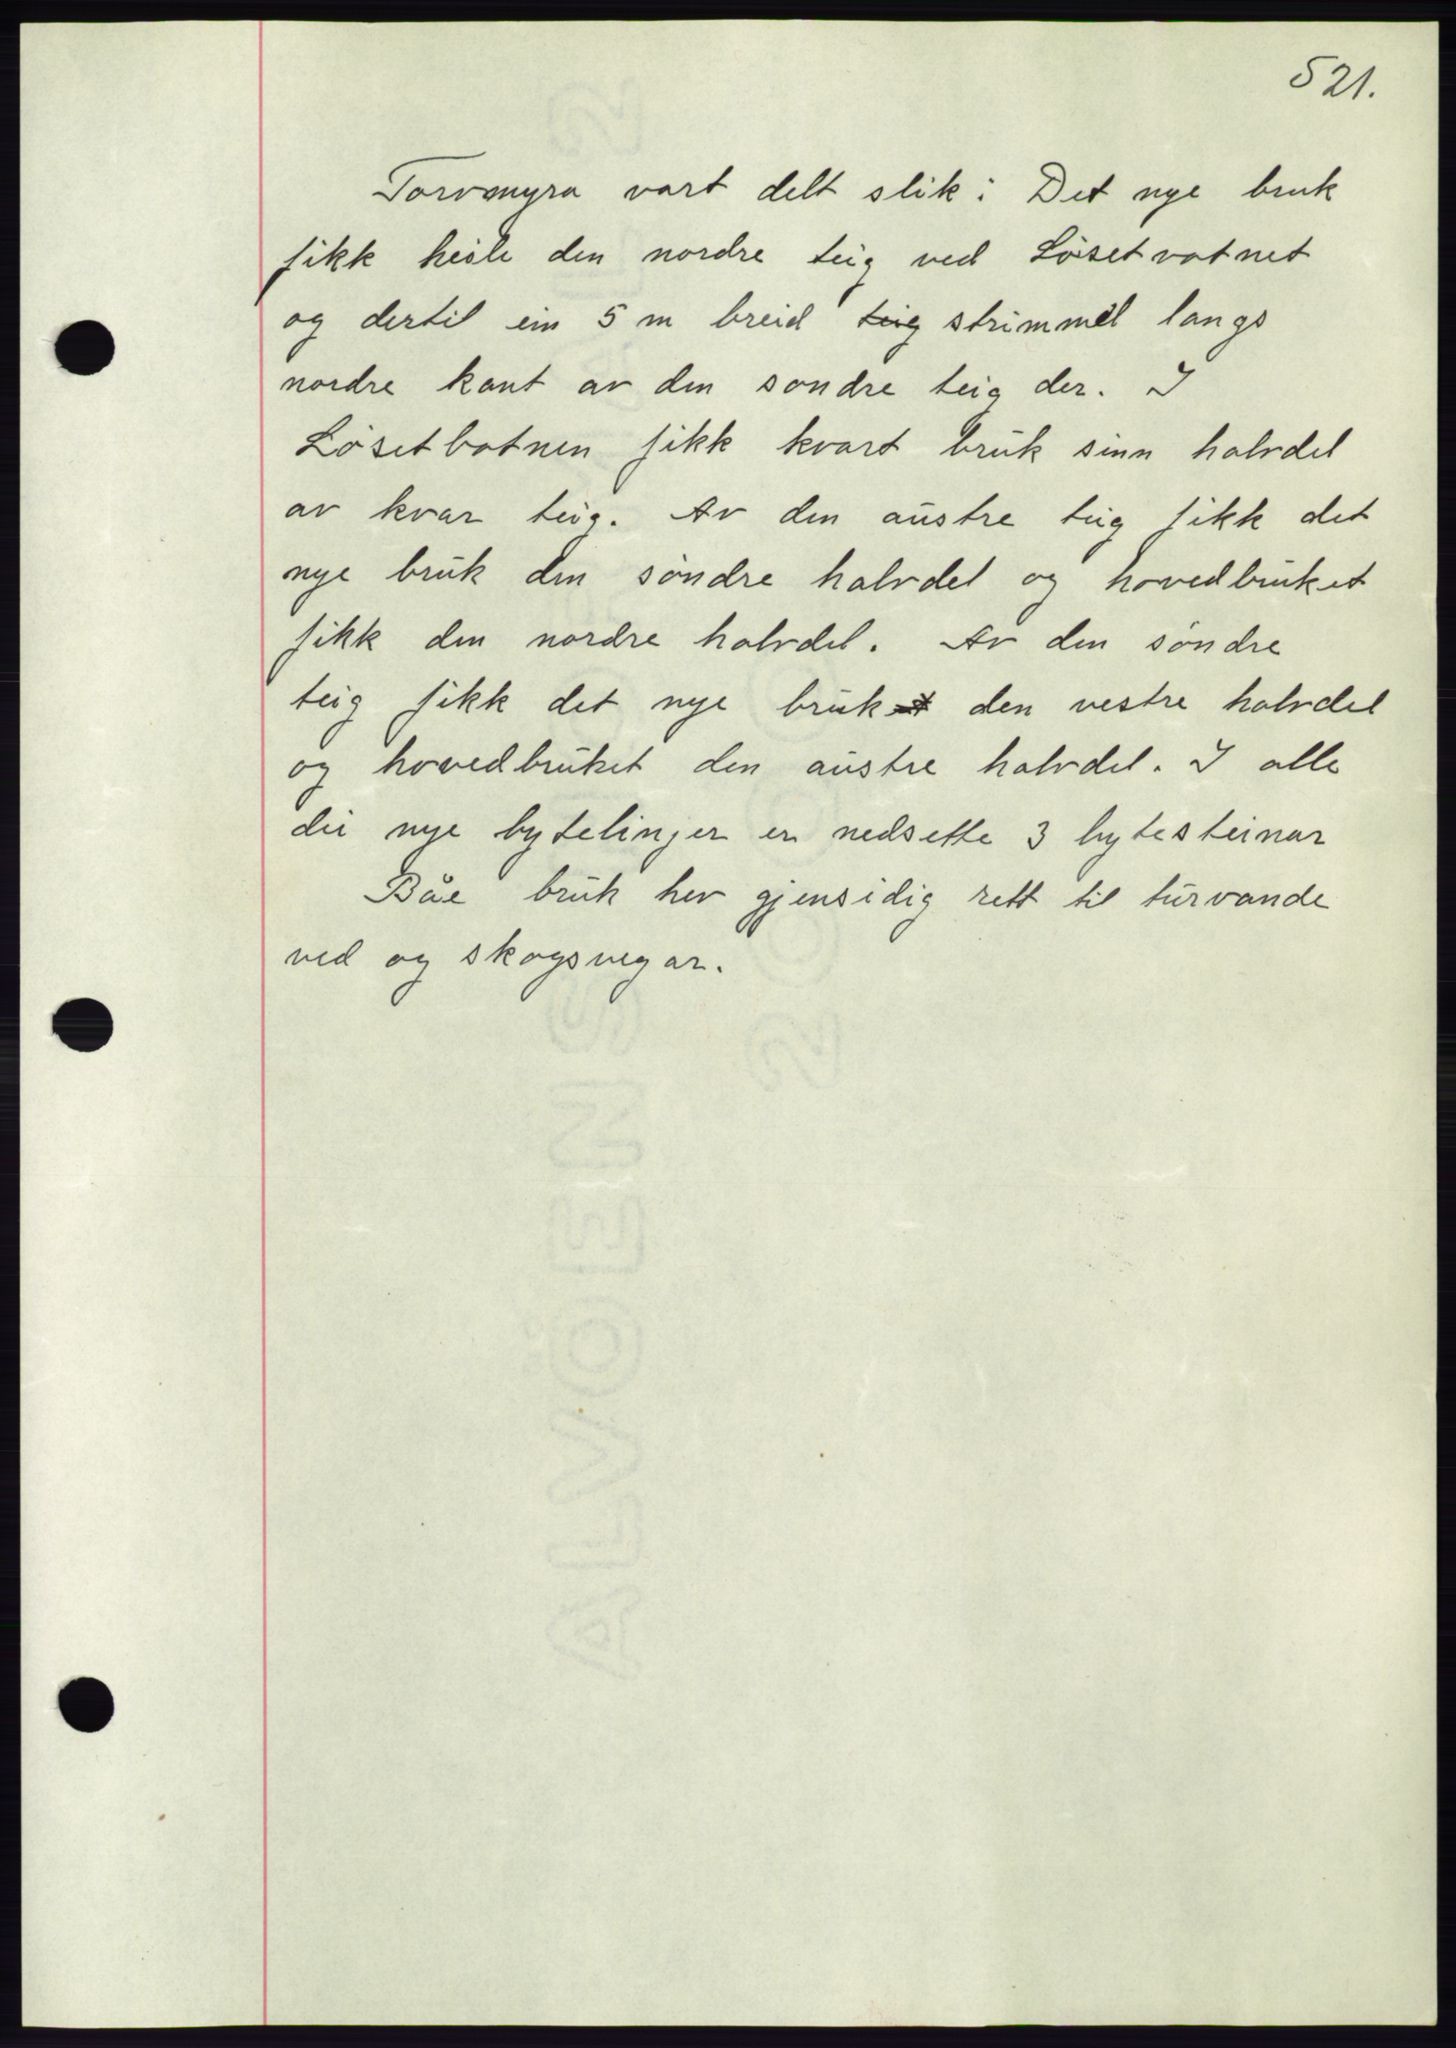 521.
Torvmyra vart delt slik: Det nye bruk
fikk heile den nordre teig ved Løsetvatnet
og dertil ein 5 m breid ~~teig~~ strimmel langs
nordre kant av den søndre teig der. I
Løsetbotnen fikk kvart bruk sinn halvdel
av kvar teig. Av den austre teig fikk det
nye bruk den søndre halvdel og hovedbruket
fikk den nordre halvdel. Av den søndre
teig fikk det nye bruk~~et~~ den vestre halvdel
og hovedbruket den austre halvdel. I alle
dei nye bytelinjer er nedsette 3 bytesteinar
Båe bruk hev gjensidig rett til turvande
ved og skogsvegar.
ALVØENS